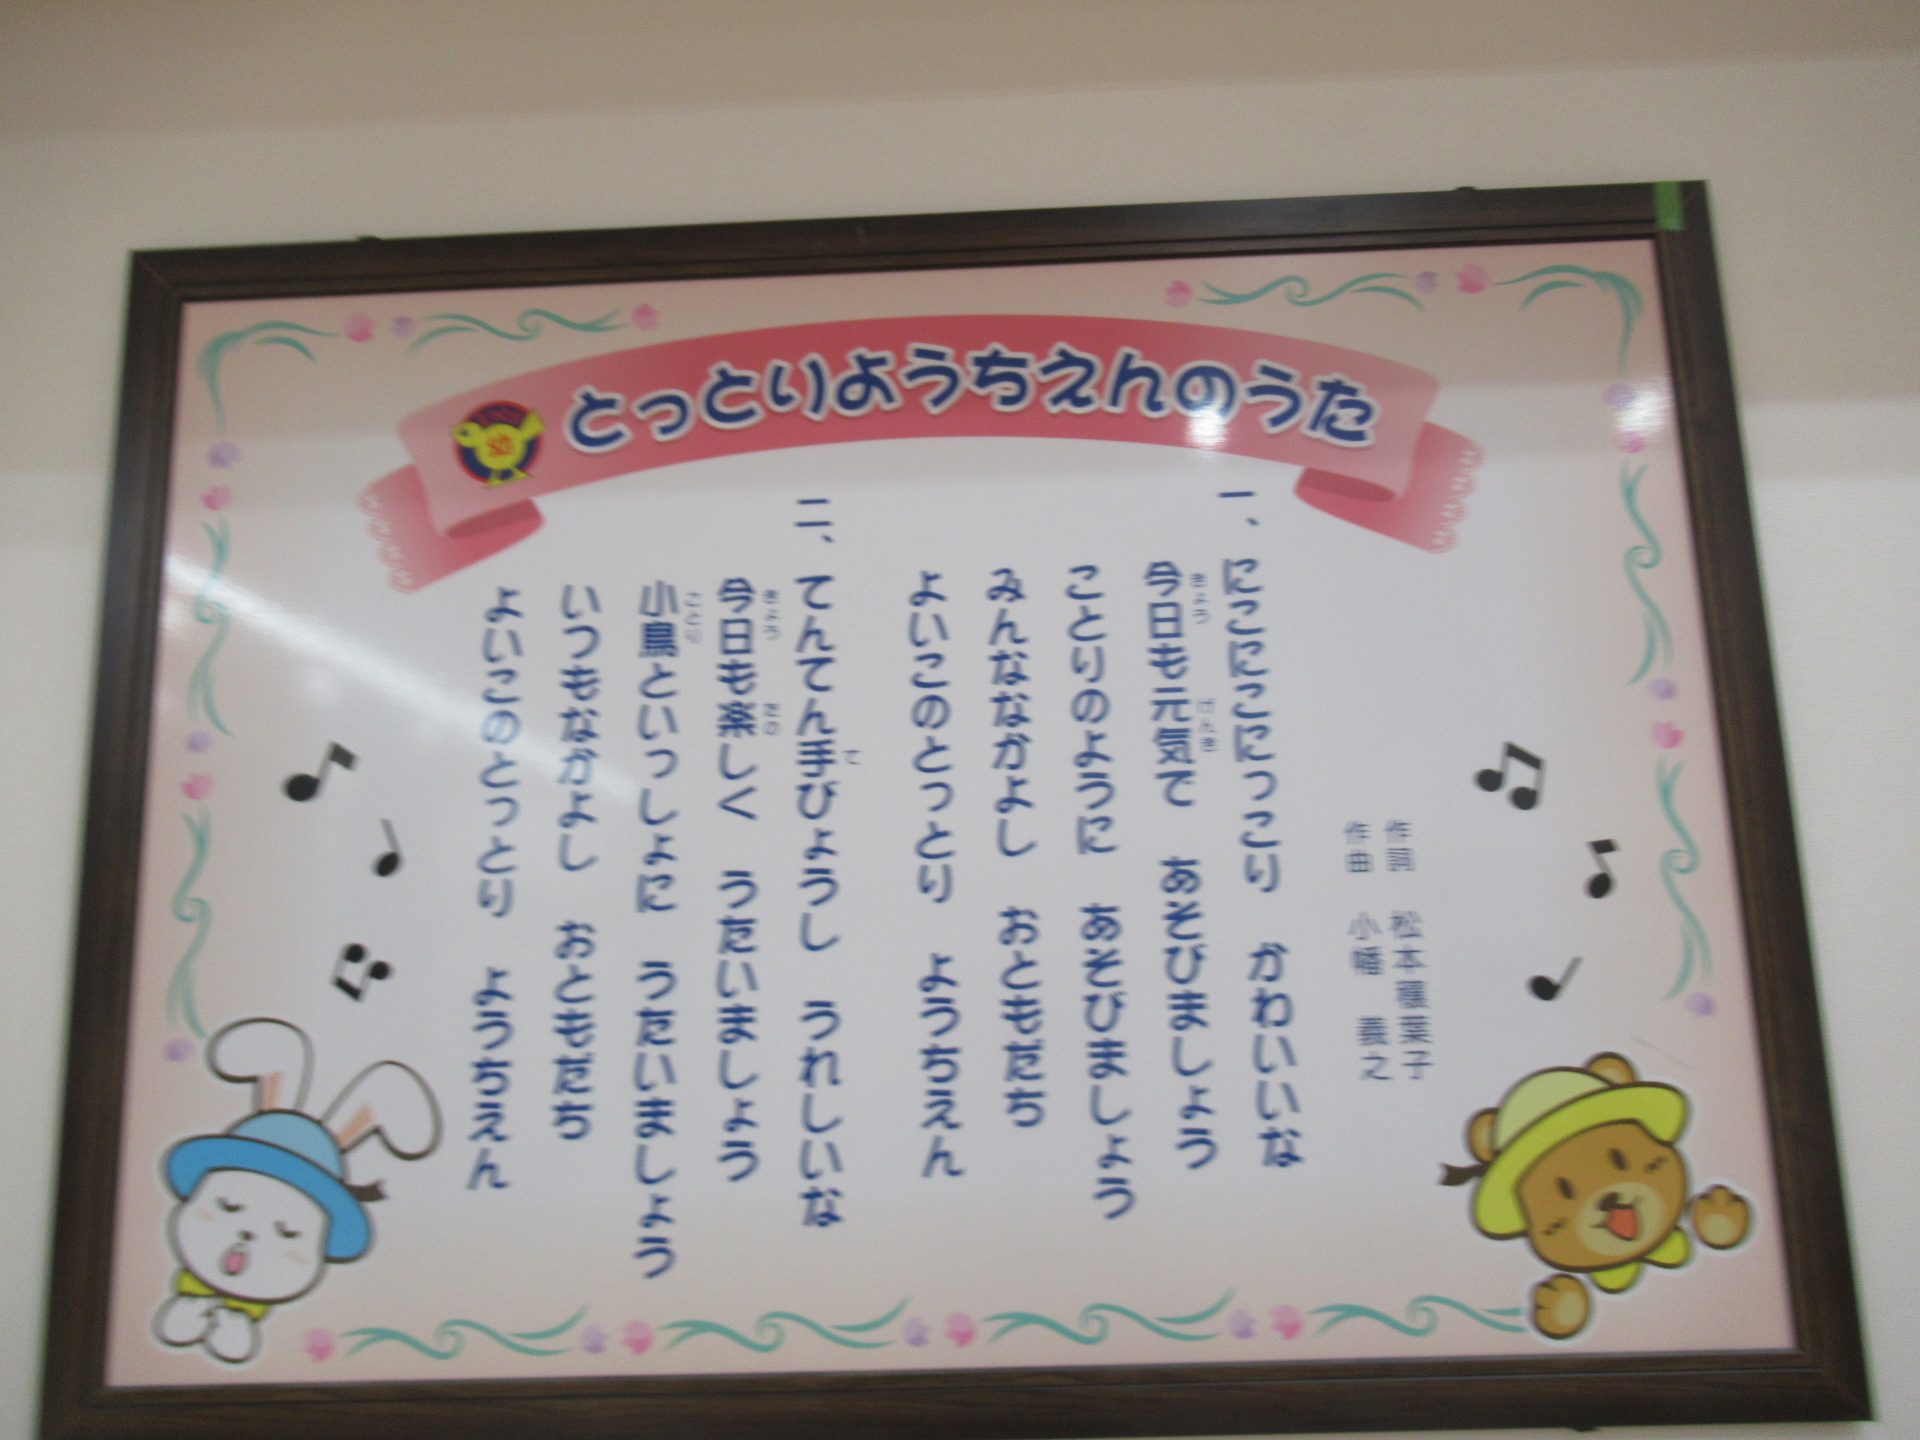 とっとりようちえんのうた
作詞 松本穰葉子
作曲 小幡 義之
一、にこにこにっこり かわいいな
今日も元気で あそびましょう
ことりのように あそびましょう
みんななかよし おともだち
よいこのとっとり ようちえん
二、てんてん手びょうし うれしいな
今日も楽しく うたいましょう
小鳥といっしょに うたいましょう
いつもなかよし おともだち
よいこのとっとり ようちえん